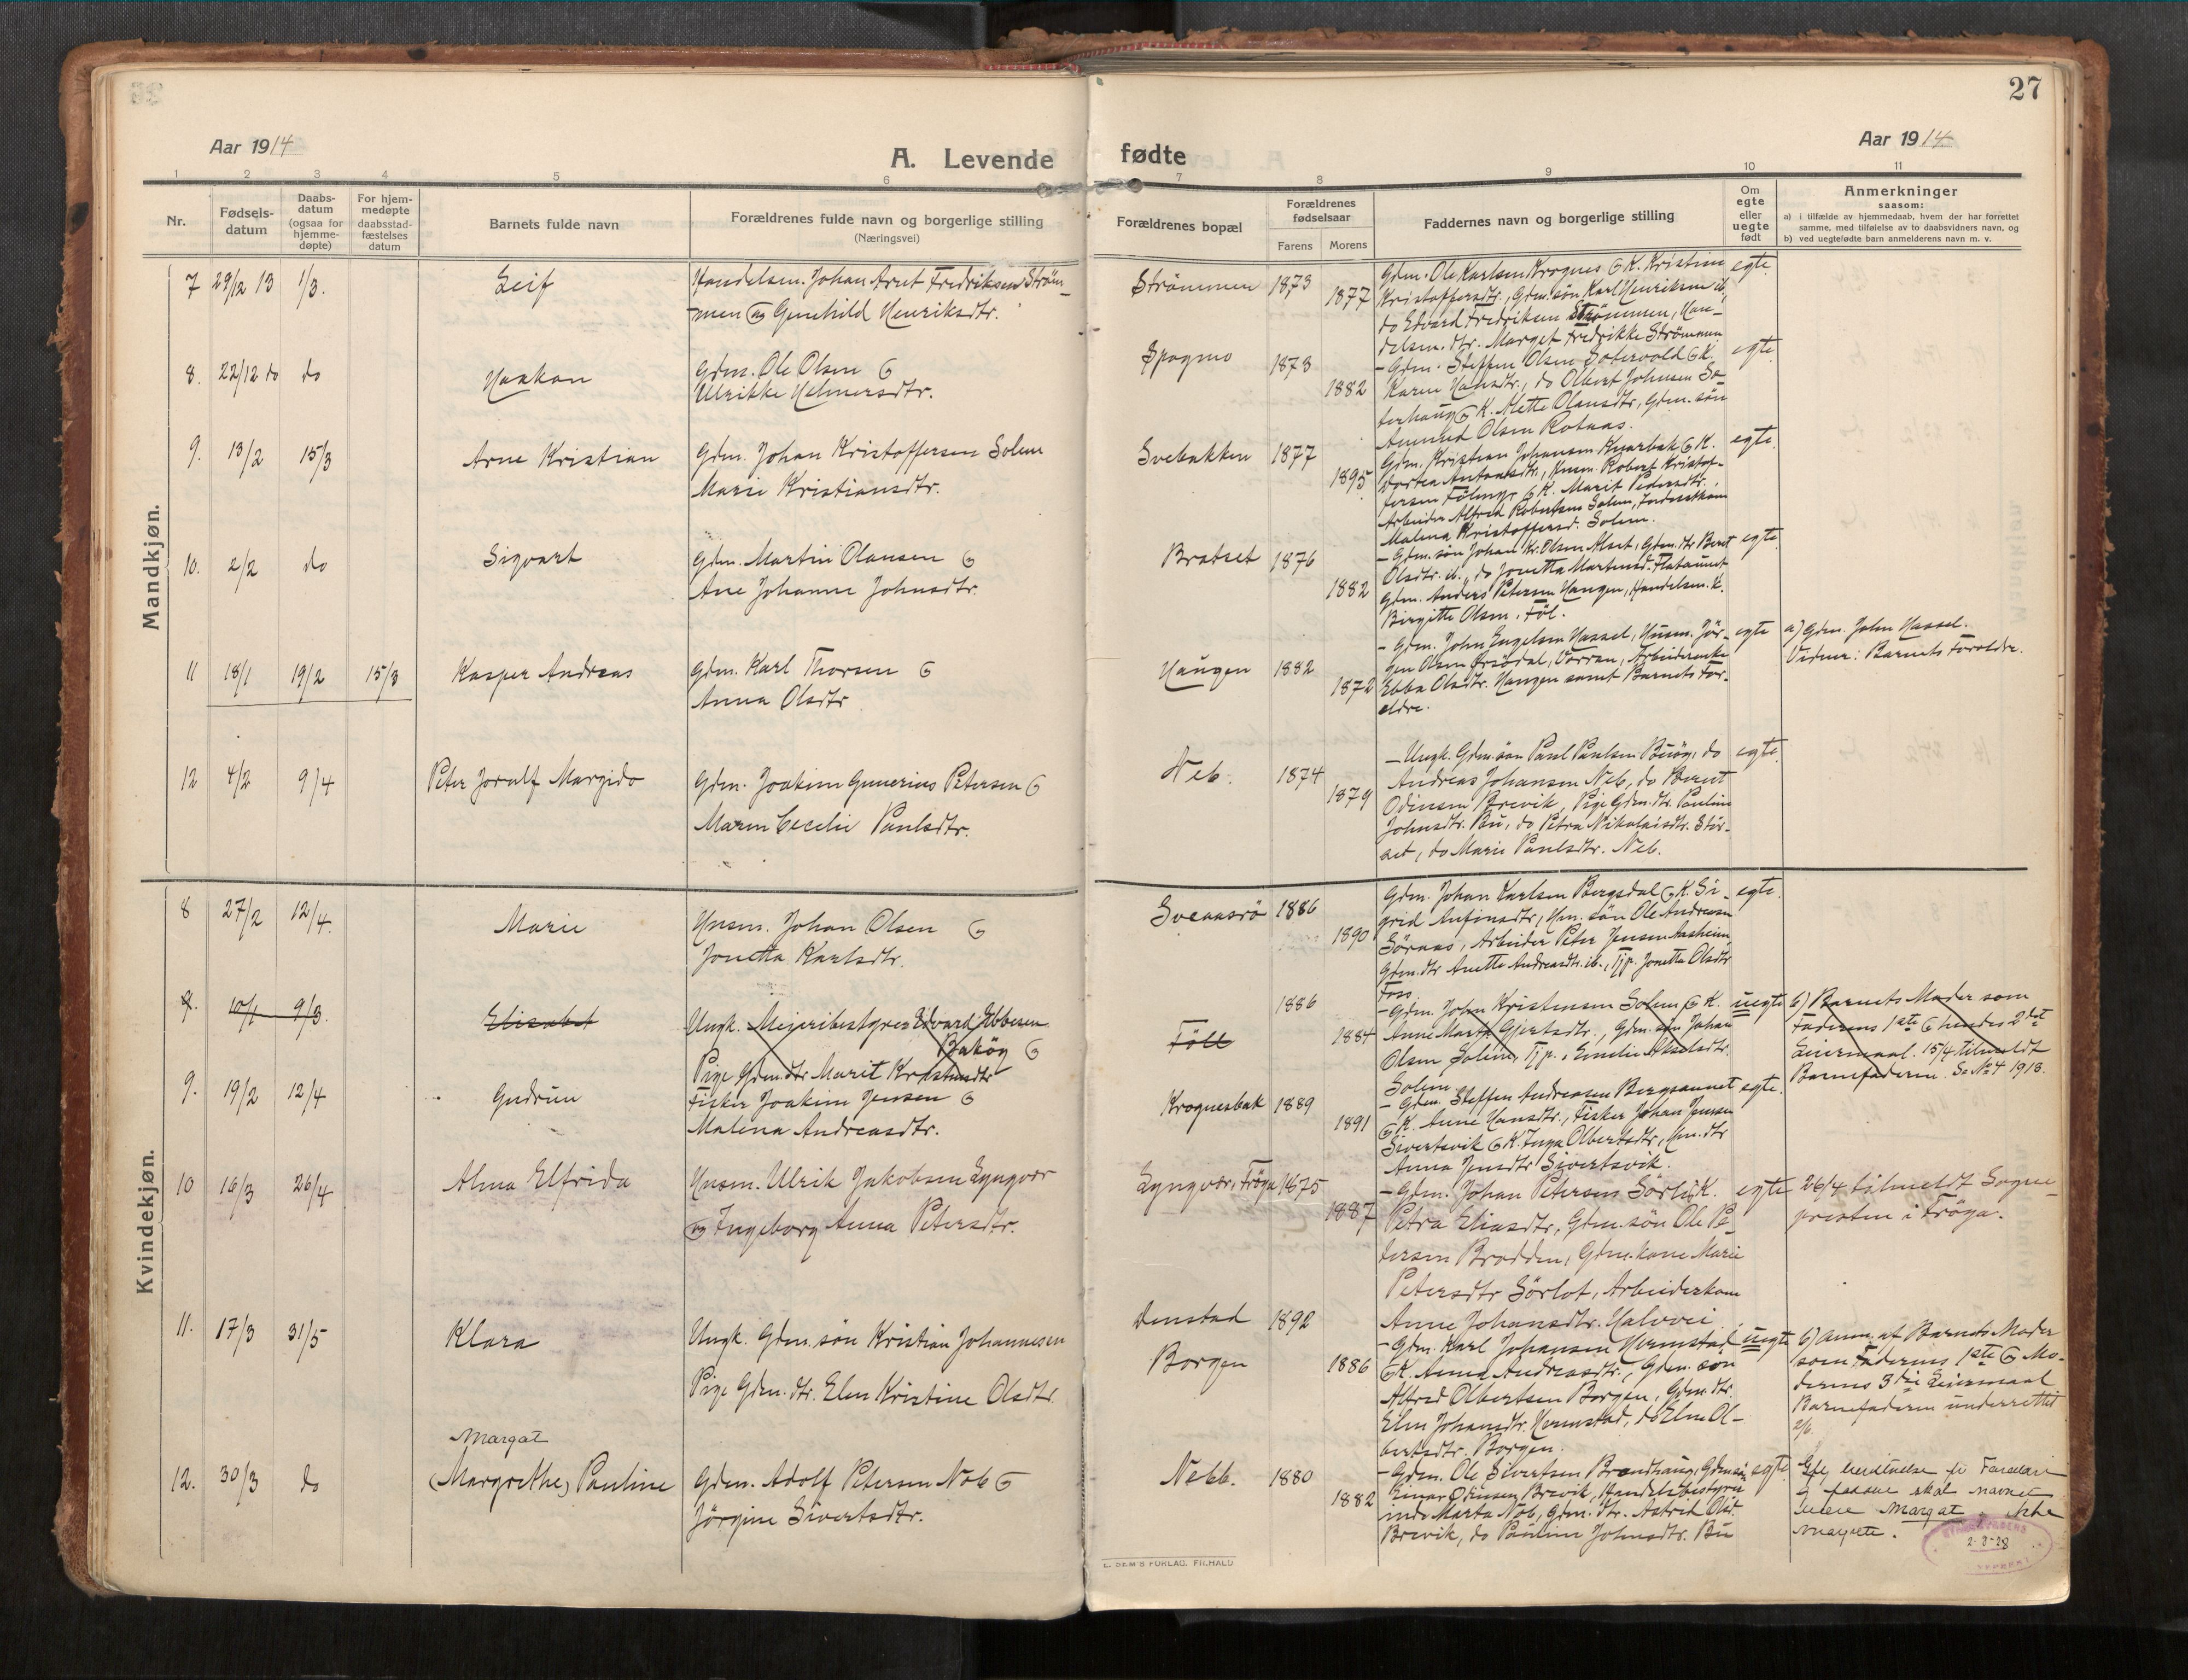 27
Aar 1914
A. Levende
fødte
Aar 1914
1 2 3 4 5 6 7 8 9 10 11
Nr.
Fødsels-
datum
Daabs-
datum
(ogsaa for
hjemme-
døpte)
For hjem-
medøpte
daabsstad-
fæstelses
datum
Barnets fulde navn
Forældrenes fulde navn og borgerlige stilling
(Næringsvei)
Forældrenes bopæl
Forældrenes
fødselsaar
Farens Morens
Faddernes navn og borgerlige stilling
Om
egte
eller
uegte
født
Anmerkninger
saasom:
a) i tilfælde av hjemmedaab, hvem der har forrettet
samme, med tilføielse av to daabsvidners navn, og
b) ved uegtefødte barn anmelderens navn m. v.
Mandkjøn.
7 29/12 13 1/3. Leif
Handelsm. Johan Arnt Fredriksen Strøm-
men og Gunhild Henriksdtr.
Strømmen 1873 1877
Gdm. Ole Karlsen Krognes & K. Kristine
Kristoffersdtr., Gdm. søn Karl Henriksen ib.,
do Edvard Fredriksen Strømmen, Han-
delsm. dtr. Marget Fredrikke Strømmen
egte
8. 22/12 do do Haakon
Gdm. Ole Olsen &
Ulrikke Helmersdtr.
Spagmo 1873 1882
- Gdm. Steffen Olsen Sætervold & K.
Karen Hansdtr., do Olbert Johnsen Sæ-
terhaug & K. Mette Olausdtr, Gdm. søn
Olsen Rotaas.
egte
9. 13/2 15/3 Arne Kristian
Gdm. Johan Kristoffersen Solem
Marie Kristiansdtr.
Svebakken 1877 1895
Gdm. Kristian Johansen Kvarbak & K.
Dortea Antonsdtr., Husm. Robert Kristof-
fersen Følling & K. Marit Pedersdtr.,
Arbeider Alfred Robertsen Solem,
Malena Kristoffersd. Solem.
egte
10. 2/2 do Sigvart
Gdm. Martin Olausen &
Ane Johanne Johnsdtr.
Bratset 1876 1882
- Gdm. søn Johan Kr. Olsen Alset, Gdm. dtr Berit
Olsdtr. ib., do Jonetta Martinsd. Flataunet
Gdm. Anders Petersen Haugen, Handelsm. K.
Birgitte Olsen, Føl.
egte
11 18/1 19/2 15/3 Kasper Andreas
Gdm. Karl Thorsen &
Anna Olsdtr
Haugen 1882 1872
- Gdm. John Engelsen Hassel, Husm. Jør-
gen Olsen Ørsdal, Verran, Arbeiderenke
Ebba Olsdtr. Haugen samt Barnets For-
ældre.
egte
a) Gdm. John Hassel.
Vidner: Barnets Forældre.
12 4/2 9/4 Peter Joralf Margido
Gdm. Joakim Gunerius Petersen &
Maren Cecelie Paulsdtr.
Neb. 1874 1879
- Ungk. Gdm. søn Paul Paulsen Buøy, do
Andreas Johansen Neb, do Bernt
Odinsen Brevik, Pige Gdm. dtr. Pauline
Johnsdtr. Bu, do Petra Nikolaisdtr. Stør-
set, do Marie Paulsdtr. Neb.
egte
Kvindekjøn.
8 27/2 12/4. Marie
Husm. Johan Olsen &
Jonetta Karlsdtr.
Sveaasrø 1886 1890
Gdm. Johan Karlsen Bergsdal & K. Si-
grid Anfinsdtr, Hm. søn Ole Andreasen
Søraas, Arbeider Peter Jensen Aasheim,
Gdm. dtr Anette Andreasdtr. ib., Tjp. Jonetta Olsdtr
Foss.
egte.
9. 10/1 9/3. Elisabet
Ungk. Meieribestyrer Edvard Ebbesen
Bakøy &
Pige Gdm. dtr Marit Kristensdtr
Føll 1886 1884
- Gdm. John Kristensen Solem & K.
Anne Marta Gjertsdtr., Gdm. søn Johan
Olsen Solem, Tjp. Emelie Akselsdtr.
Solem
uegte
b) Barnets Moder som
Faderens 1ste & hendes 2det
Leiermaal. 15/4 tilmeldt
Barnefaderen. Se No 4 1913.
9. 19/2 12/4 Gudrun
Fisker Joakim Jensen &
Malena Andreasdtr.
Krognesbak 1889 1891
- Gdm. Steffen Andreasen Bergsaunet
& K. Anne Hansdtr., Fisker Johan Jensen
Sivertsvik & K. Inga Olbertsdtr, Hm. dtr
Anna Jensdtr Sivertsvik.
egte.
10 16/3 26/4 Alma Elfrida
Husm. Ulrik Jakobsen Lyngvær
og Ingeborg Anna Petersdtr.
Lyngvær, Frøya 1875 1887
- Gdm. Johan Petersen Sørli & K.
Petra Eliasdtr, Gdm. søn Ole Pe-
tersen Brodden, Gdm. kone Marie
Petersdtr Sørlot, Arbeiderkone
Anne Johansdtr. Halvvei
egte
26/4 tilmeldt Sogne-
presten i Frøya.
11. 17/3 31/5 Klara
Ungk. Gdm. søn Kristian Johannesen
Pige Gdm. dtr. Elen Kristine Olsdtr
Denstad 1892
Borgen 1886
- Gdm. Karl Johansen Hermstad
& K. Anna Andreasdtr., Gdm. søn
Alfred Olbertsen Borgen, Gdm. dtr.
Elen Johansdtr. Hermstad, do Elen Ol-
bertsdtr. Borgen.
uegte
b) Anm. af Barnets Moder
som Faderens 1ste & Mo-
derens 3die Leiermaal
Barnefaderen underrettet
2/6.
Margat
12. 30/3 do (Margrethe) Pauline
Gdm. Adolf Petersen Neb &
Jørgine Sivertsdtr.
Nebb. 1880 1882
- Gdm. Ole Sivertsen Brandhaug, Gdm. søn
Einar Odinsen Brevik, Handelsbestyrer
inde Marta Neb, Gdm. dtr. Astrid Olsd.
Brevik, do Pauline Johnsdtr. Bu
egte.
skal navnet
være Margat, ikke
Margrete.
2-3-28
E. SEM'S FORLAG. FR.HALD